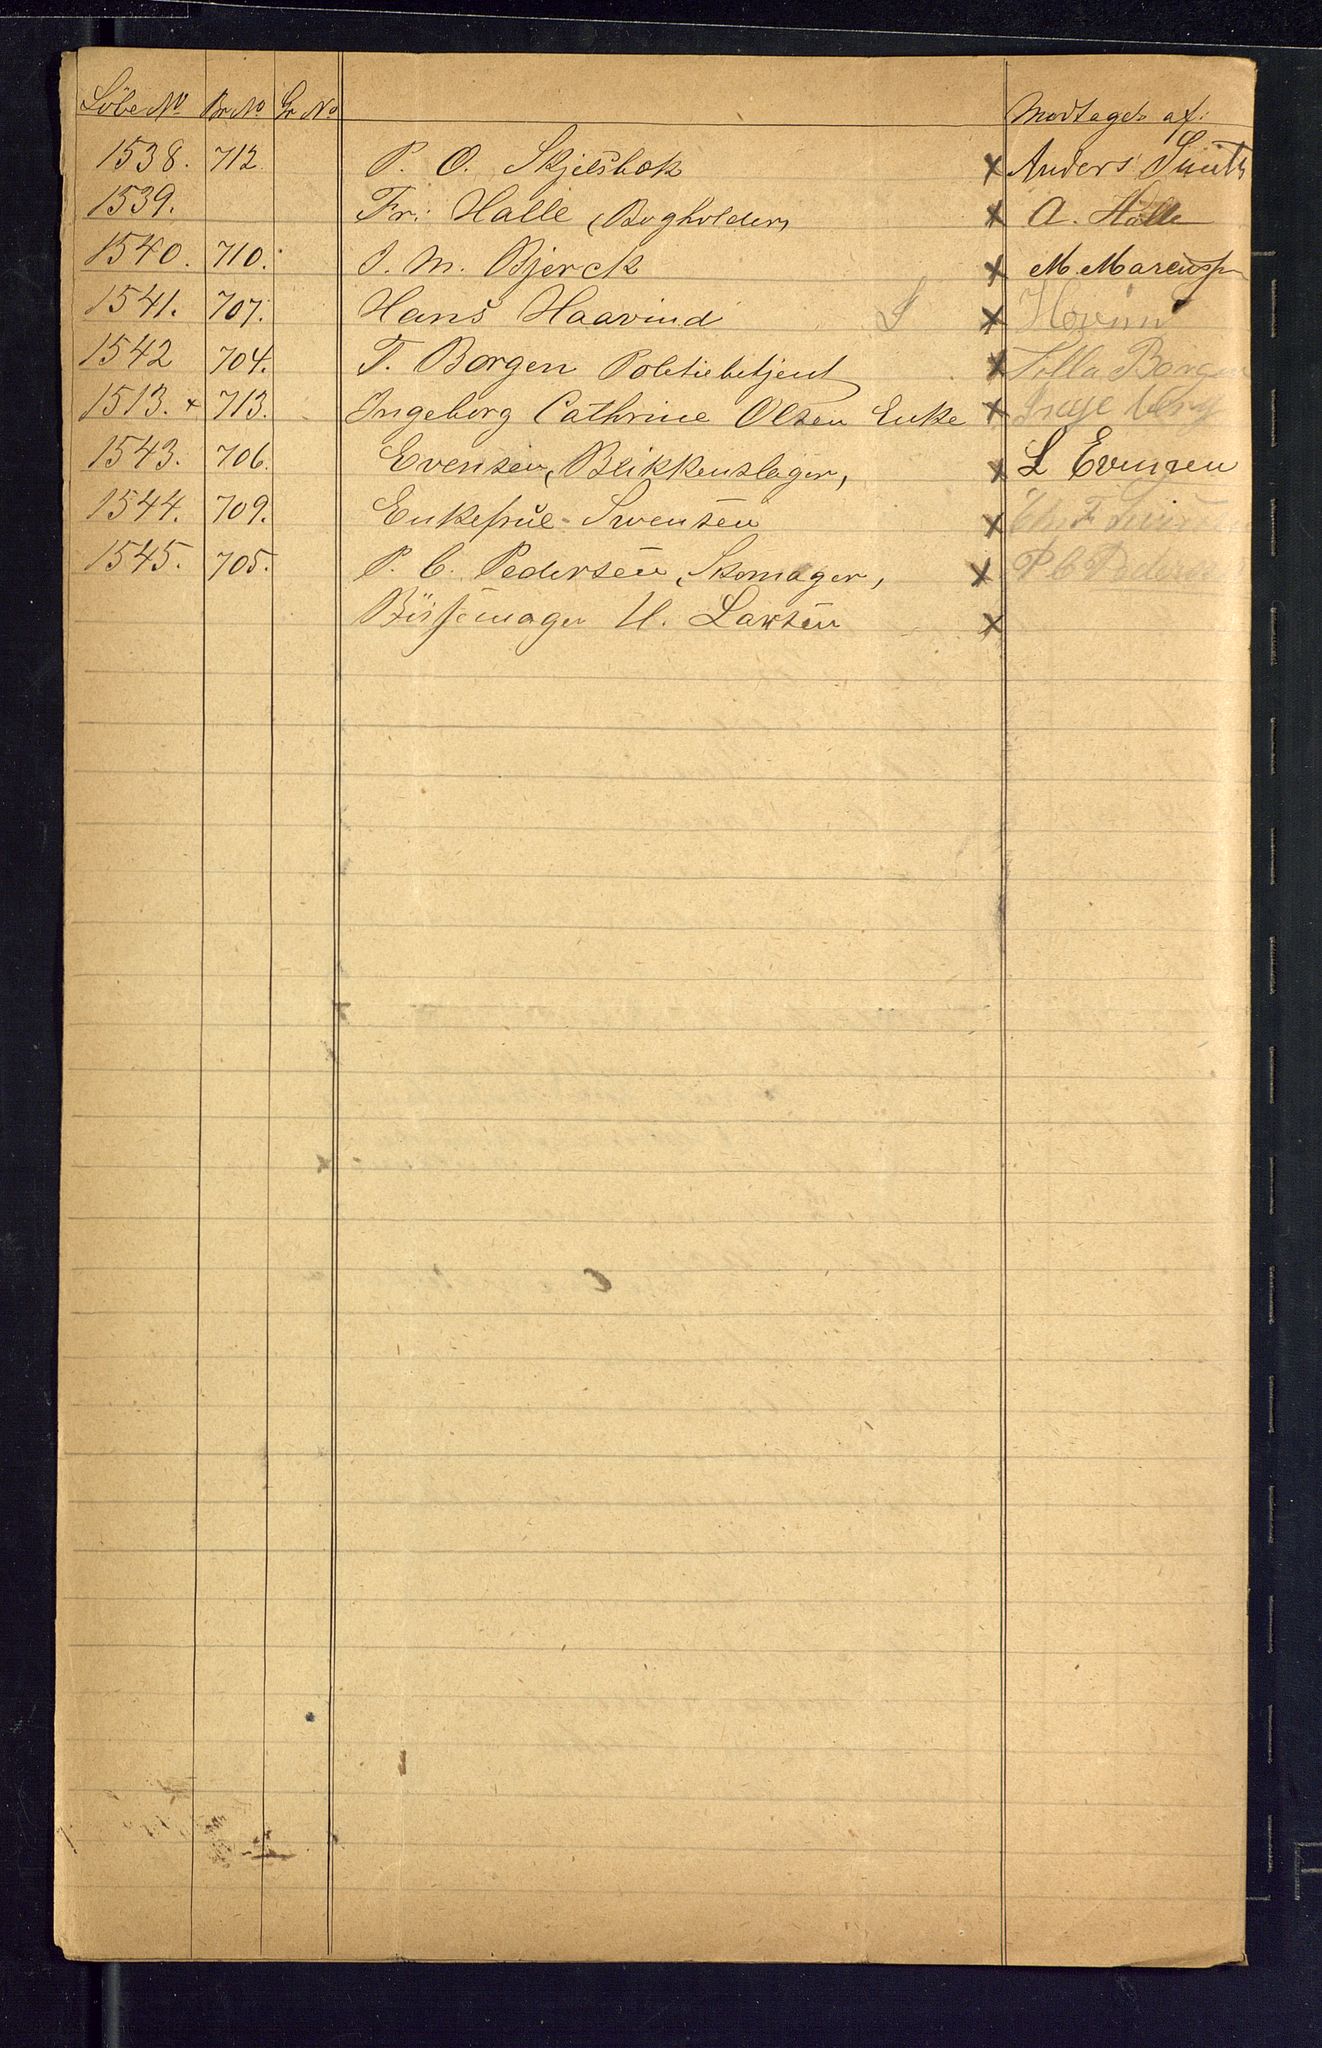 Löbe No. Br. No Gr No Modtaget af:
1538. 712 P. O. Skjelsbæk x Anders Smith
1539. Fr. Halle, Bogholder, x A. Halle
1540. 710. J. M. Bjerck x M Marcussen
1541. 707. Hans Haavind S x
1542 704. T. Borgen Politiebetjent x Borgen
1513. x 713. Ingeborg Cathrine Olsen Enke x Ingeborg
1543. 706. Evensen, Blikkenslager, x L Evensen
1544. 709. Enkefrue Svensen x
1545. 705. P. C. Pedersen, Skomager, x P C Pedersen
Bössemager H. Larsen x